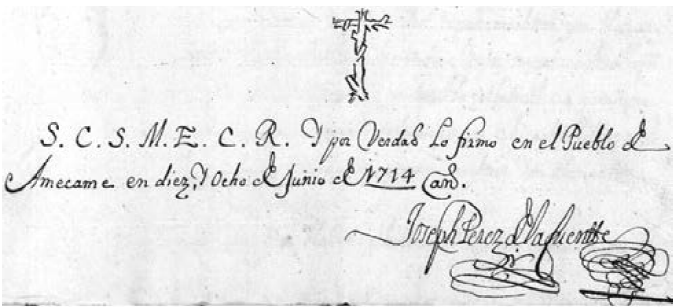 S. C. S. M. E. C. R. Y por Verdad Lo firmo en el Pueblo de
Amecame en diez, y Ocho de Junio de 1714 años.
Joseph Perez de la fuente